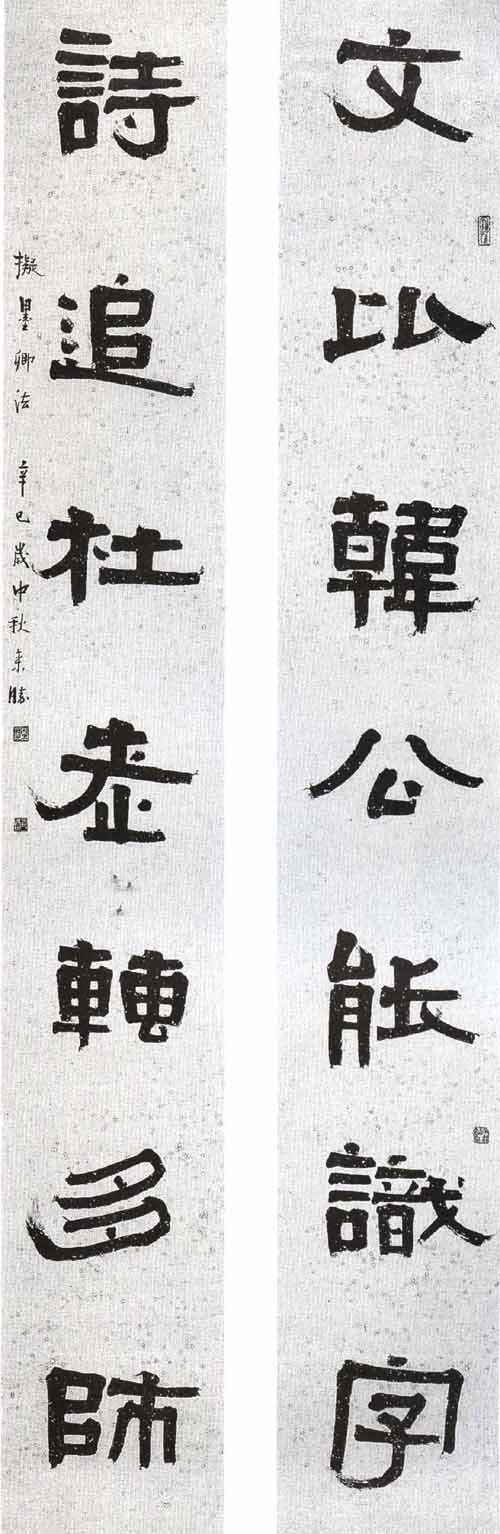 文比韓公能識字
詩追杜老轉多師
擬墨卿法 辛巳歲中秋